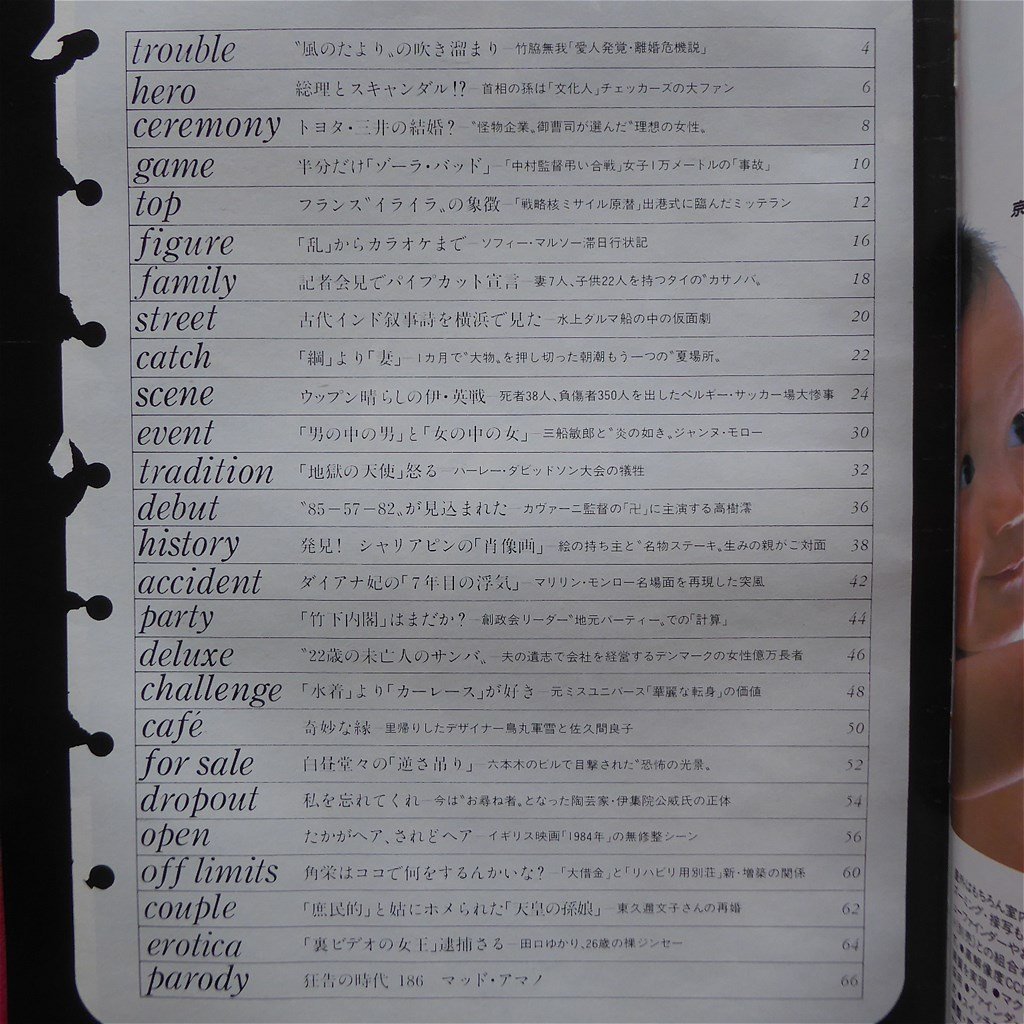 trouble 〝風のたより〟の吹き溜まり─竹脇無我「愛人発覚・離婚危機説」 4
hero 総理とスキャンダル!?─首相の孫は「文化人」チェッカーズの大ファン 6
ceremony トヨタ・三井の結婚?─〝怪物企業〟御曹司が選んだ〝理想の女性〟 8
game 半分だけ「ゾーラ・バッド」─「中村監督弔い合戦」女子1万メートルの「事故」 10
top フランス〝イライラ〟の象徴─「戦略核ミサイル原潜」出港式に臨んだミッテラン 12
figure 「乱」からカラオケまで─ソフィー・マルソー滞日行状記 16
family 記者会見でパイプカット宣言─妻7人、子供22人を持つタイの〝カサノバ〟 18
street 古代インド叙事詩を横浜で見た─水上ダルマ船の中の仮面劇 20
catch 「綱」より「妻」─1カ月で〝大物〟を押し切った朝潮もう一つの〝夏場所〟 22
scene ウップン晴らしの伊・英戦─死者38人、負傷者350人を出したベルギー・サッカー場大惨事 24
event 「男の中の男」と「女の中の女」─三船敏郎と〝炎の如き〟ジャンヌ・モロー 30
tradition 「地獄の天使」怒る─ハーレー・ダビッドソン大会の犠牲 32
debut 〝85−57−82〟が見込まれた─カヴァーニ監督の「卍」に主演する高樹澪 36
history 発見! シャリアピンの「肖像画」─絵の持ち主と〝名物ステーキ〟生みの親がご対面 38
accident ダイアナ妃の「7年目の浮気」─マリリン・モンロー名場面を再現した突風 42
party 「竹下内閣」はまだか?─創政会リーダー〝地元パーティー〟での「計算」 44
deluxe 〝22歳の未亡人のサンバ〟─夫の遺志で会社を経営するデンマークの女性億万長者 46
challenge 「水着」より「カーレース」が好き─元ミスユニバース「華麗な転身」の価値 48
café 奇妙な縁─里帰りしたデザイナー鳥丸軍雪と佐久間良子 50
for sale 白昼堂々の「逆さ吊り」─六本木のビルで目撃された〝恐怖の光景〟 52
dropout 私を忘れてくれ─今は〝お尋ね者〟となった陶芸家・伊集院公威氏の正体 54
open たかがヘア、されどヘア─イギリス映画「1984年」の無修整シーン 56
off limits 角栄はココで何をするんかいな?─「大借金」と「リハビリ用別荘」新・増築の関係 60
couple 「庶民的」と姑にホメられた「天皇の孫娘」─東久邇文子さんの再婚 62
erotica 「裏ビデオの女王」逮捕さる─田口ゆかり、26歳の裸ジンセー 64
parody 狂告の時代 186 マッド・アマノ 66
京